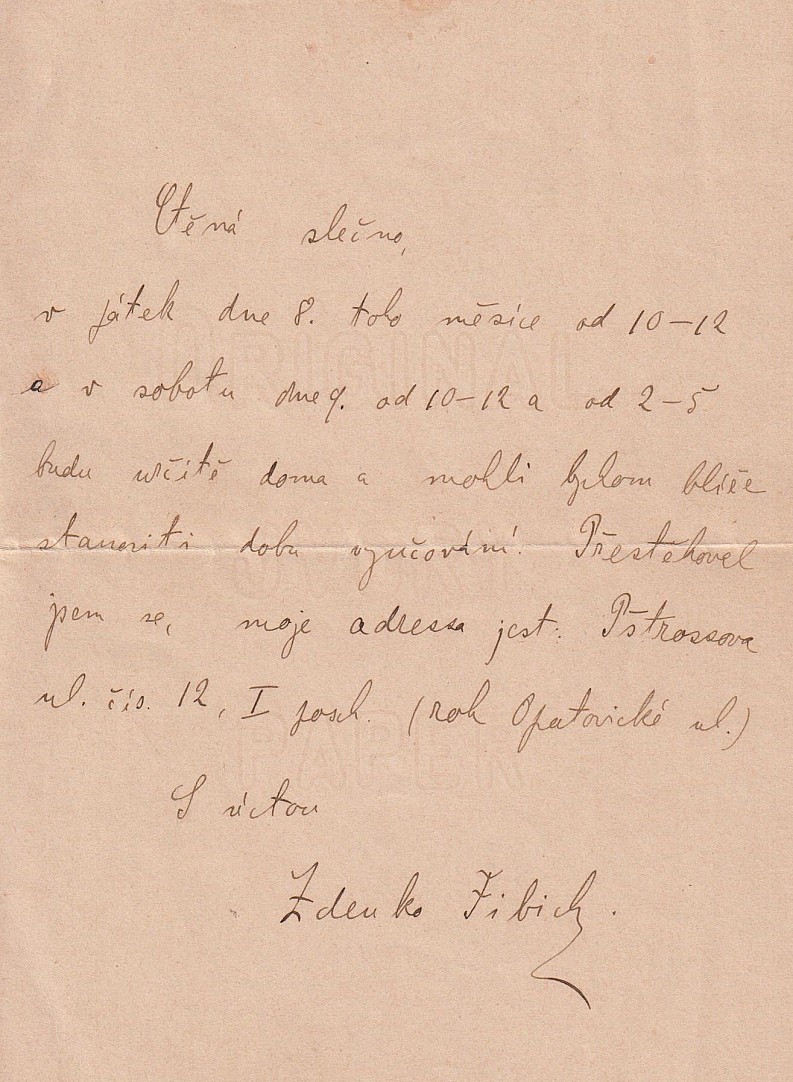 Ctěná slečno,
v pátek dne 8. toho měsíce od 10–12
a v sobotu dne 9. od 10–12 a od 2–5
budu určitě doma a mohli bychom blíže
stanoviti dobu vyučování. Přestěhoval
jsem se, moje adressa jest: Pštrossova
ul. čís. 12, I posch. (roh Opatovické ul.)
S úctou
Zdenko Fibich.
ORIGINAL
PAPER